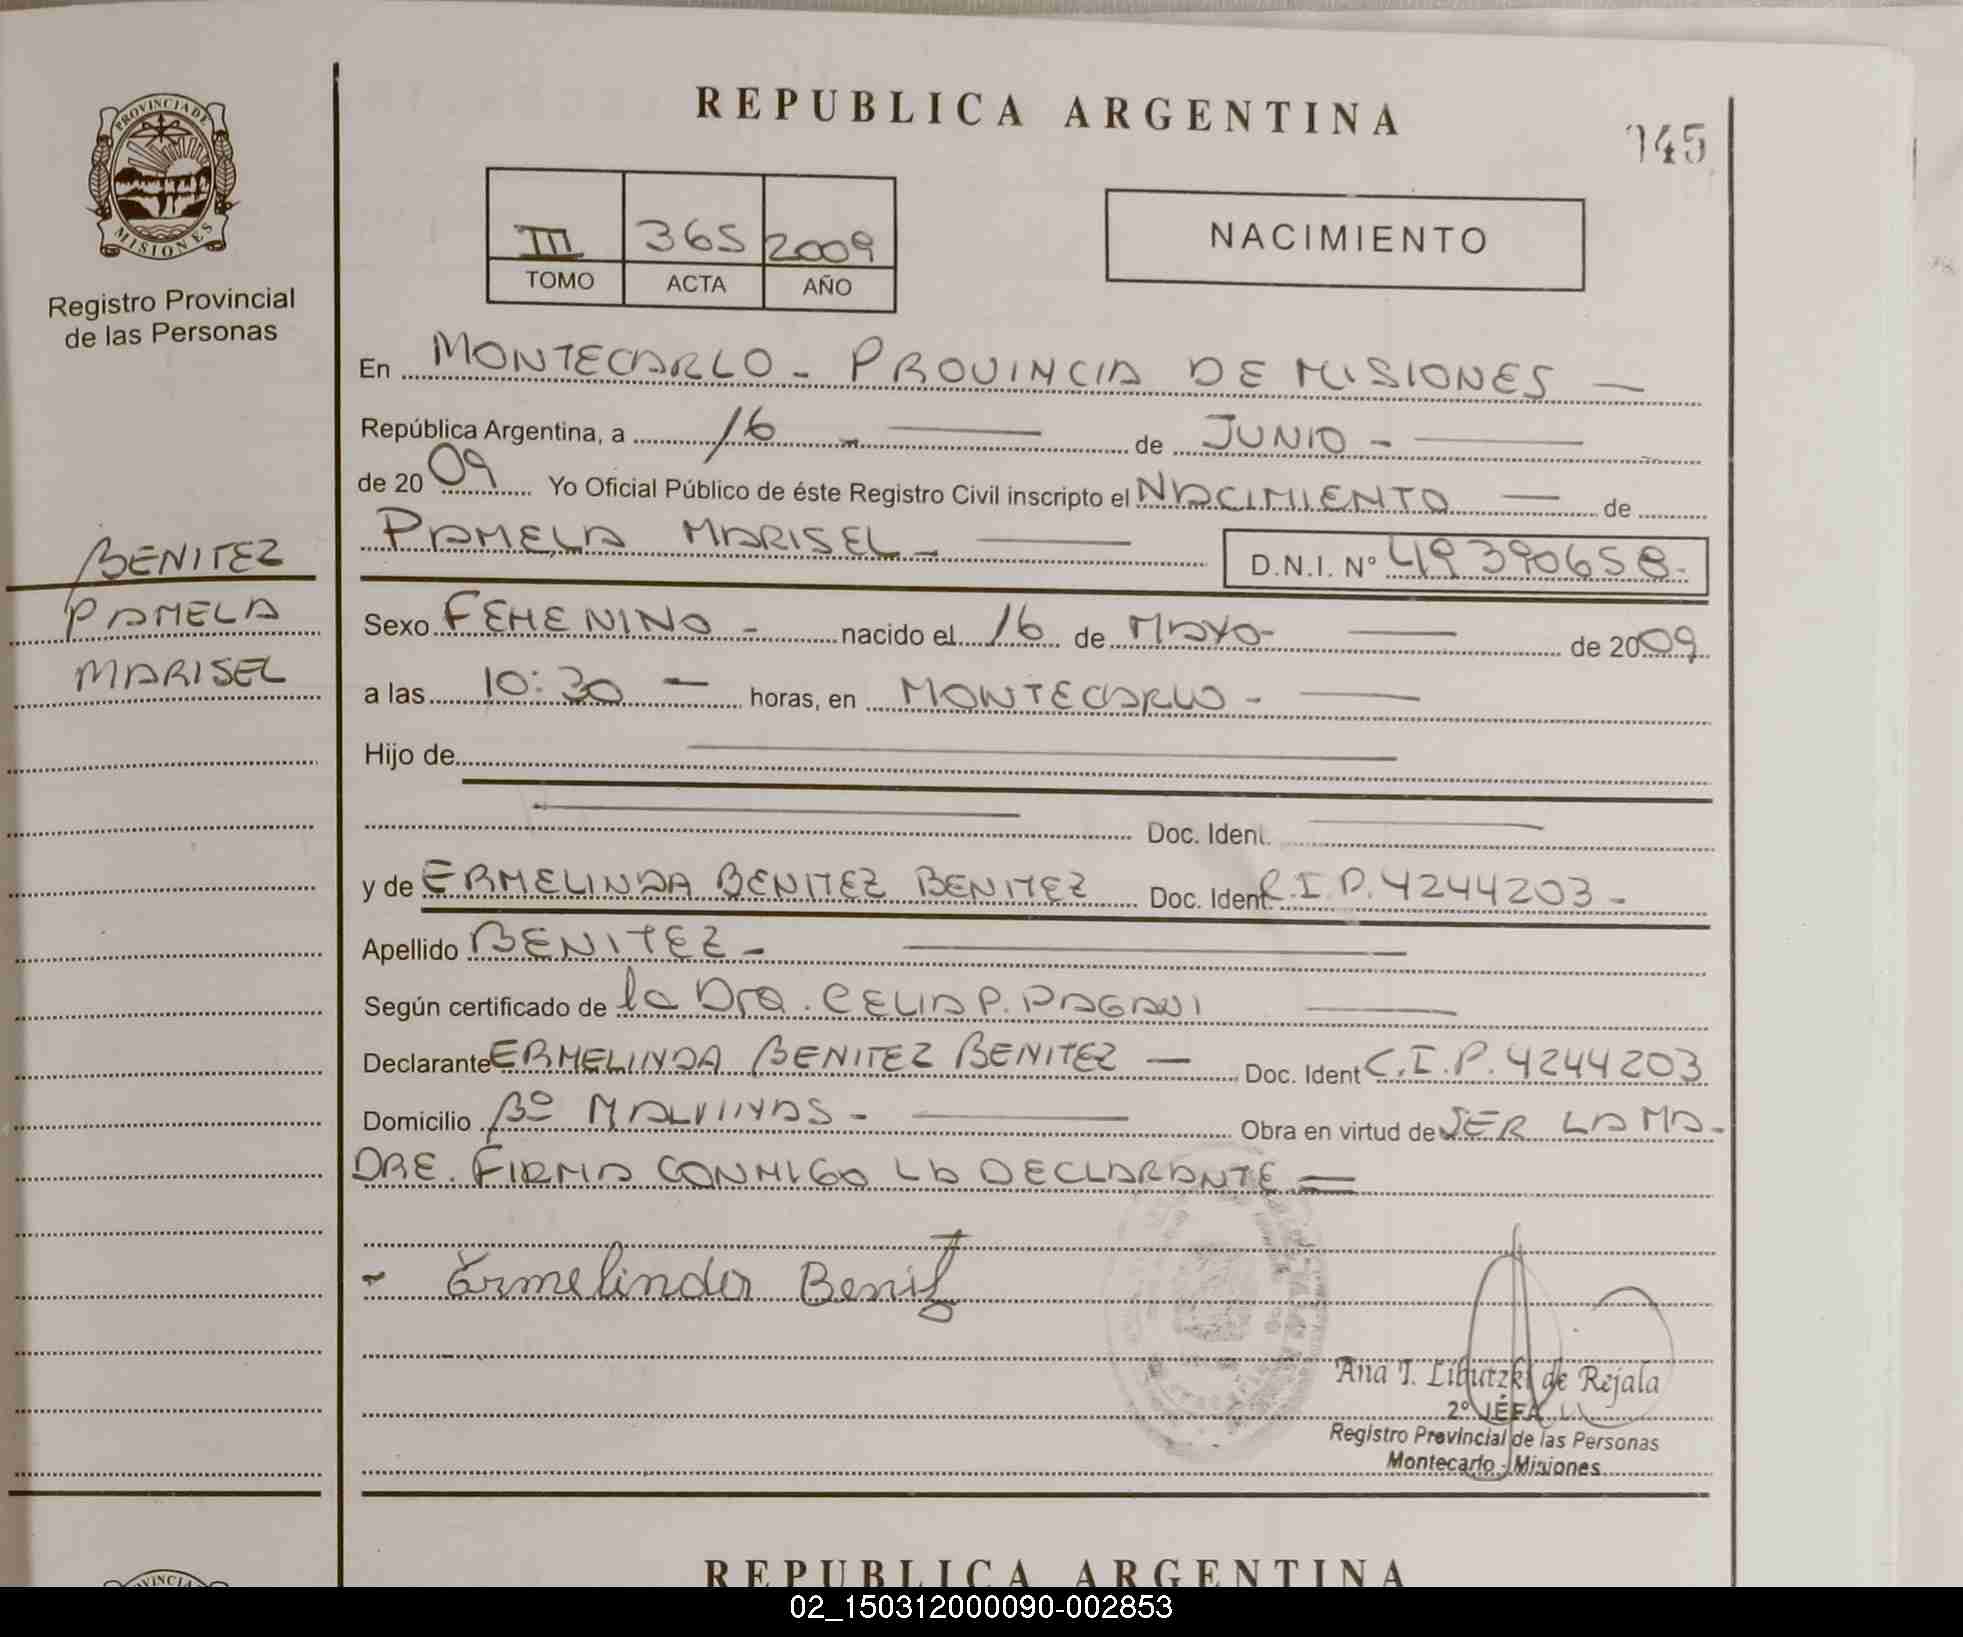 REPUBLICA ARGENTINA
145
PROVINCIA DE
MISIONES
Registro Provincial
de las Personas
III 365 2009
TOMO ACTA AÑO
NACIMIENTO
En MONTECARLO - PROVINCIA DE MISIONES —
República Argentina, a 16 - — de JUNIO - —
de 2009 Yo Oficial Público de éste Registro Civil inscripto el NACIMIENTO — de
PAMELA MARISEL - — D.N.I. Nº 49390658.-
BENITEZ
PAMELA
MARISEL
Sexo FEMENINO - nacido el 16 de MAYO - — de 2009
a las 10:30 — horas, en MONTECARLO - —
Hijo de —
— Doc. Ident. —
y de ERMELINDA BENITEZ BENITEZ Doc. Ident. C.I.P. 4244203 -
Apellido BENITEZ - —
Según certificado de la Dra. CELIA P. PAGANI —
Declarante ERMELINDA BENITEZ BENITEZ — Doc. Ident C.I.P. 4244203
Domicilio Bº MALVINAS - — Obra en virtud de SER LA MA-
DRE. FIRMA CONMIGO LA DECLARANTE =
- Ermelinda Benitz
Ana T. Libutzki de Rejala
2º JEFA
Registro Provincial de las Personas
Montecarlo - Misiones
REPUBLICA ARGENTINA
02_150312000090-002853